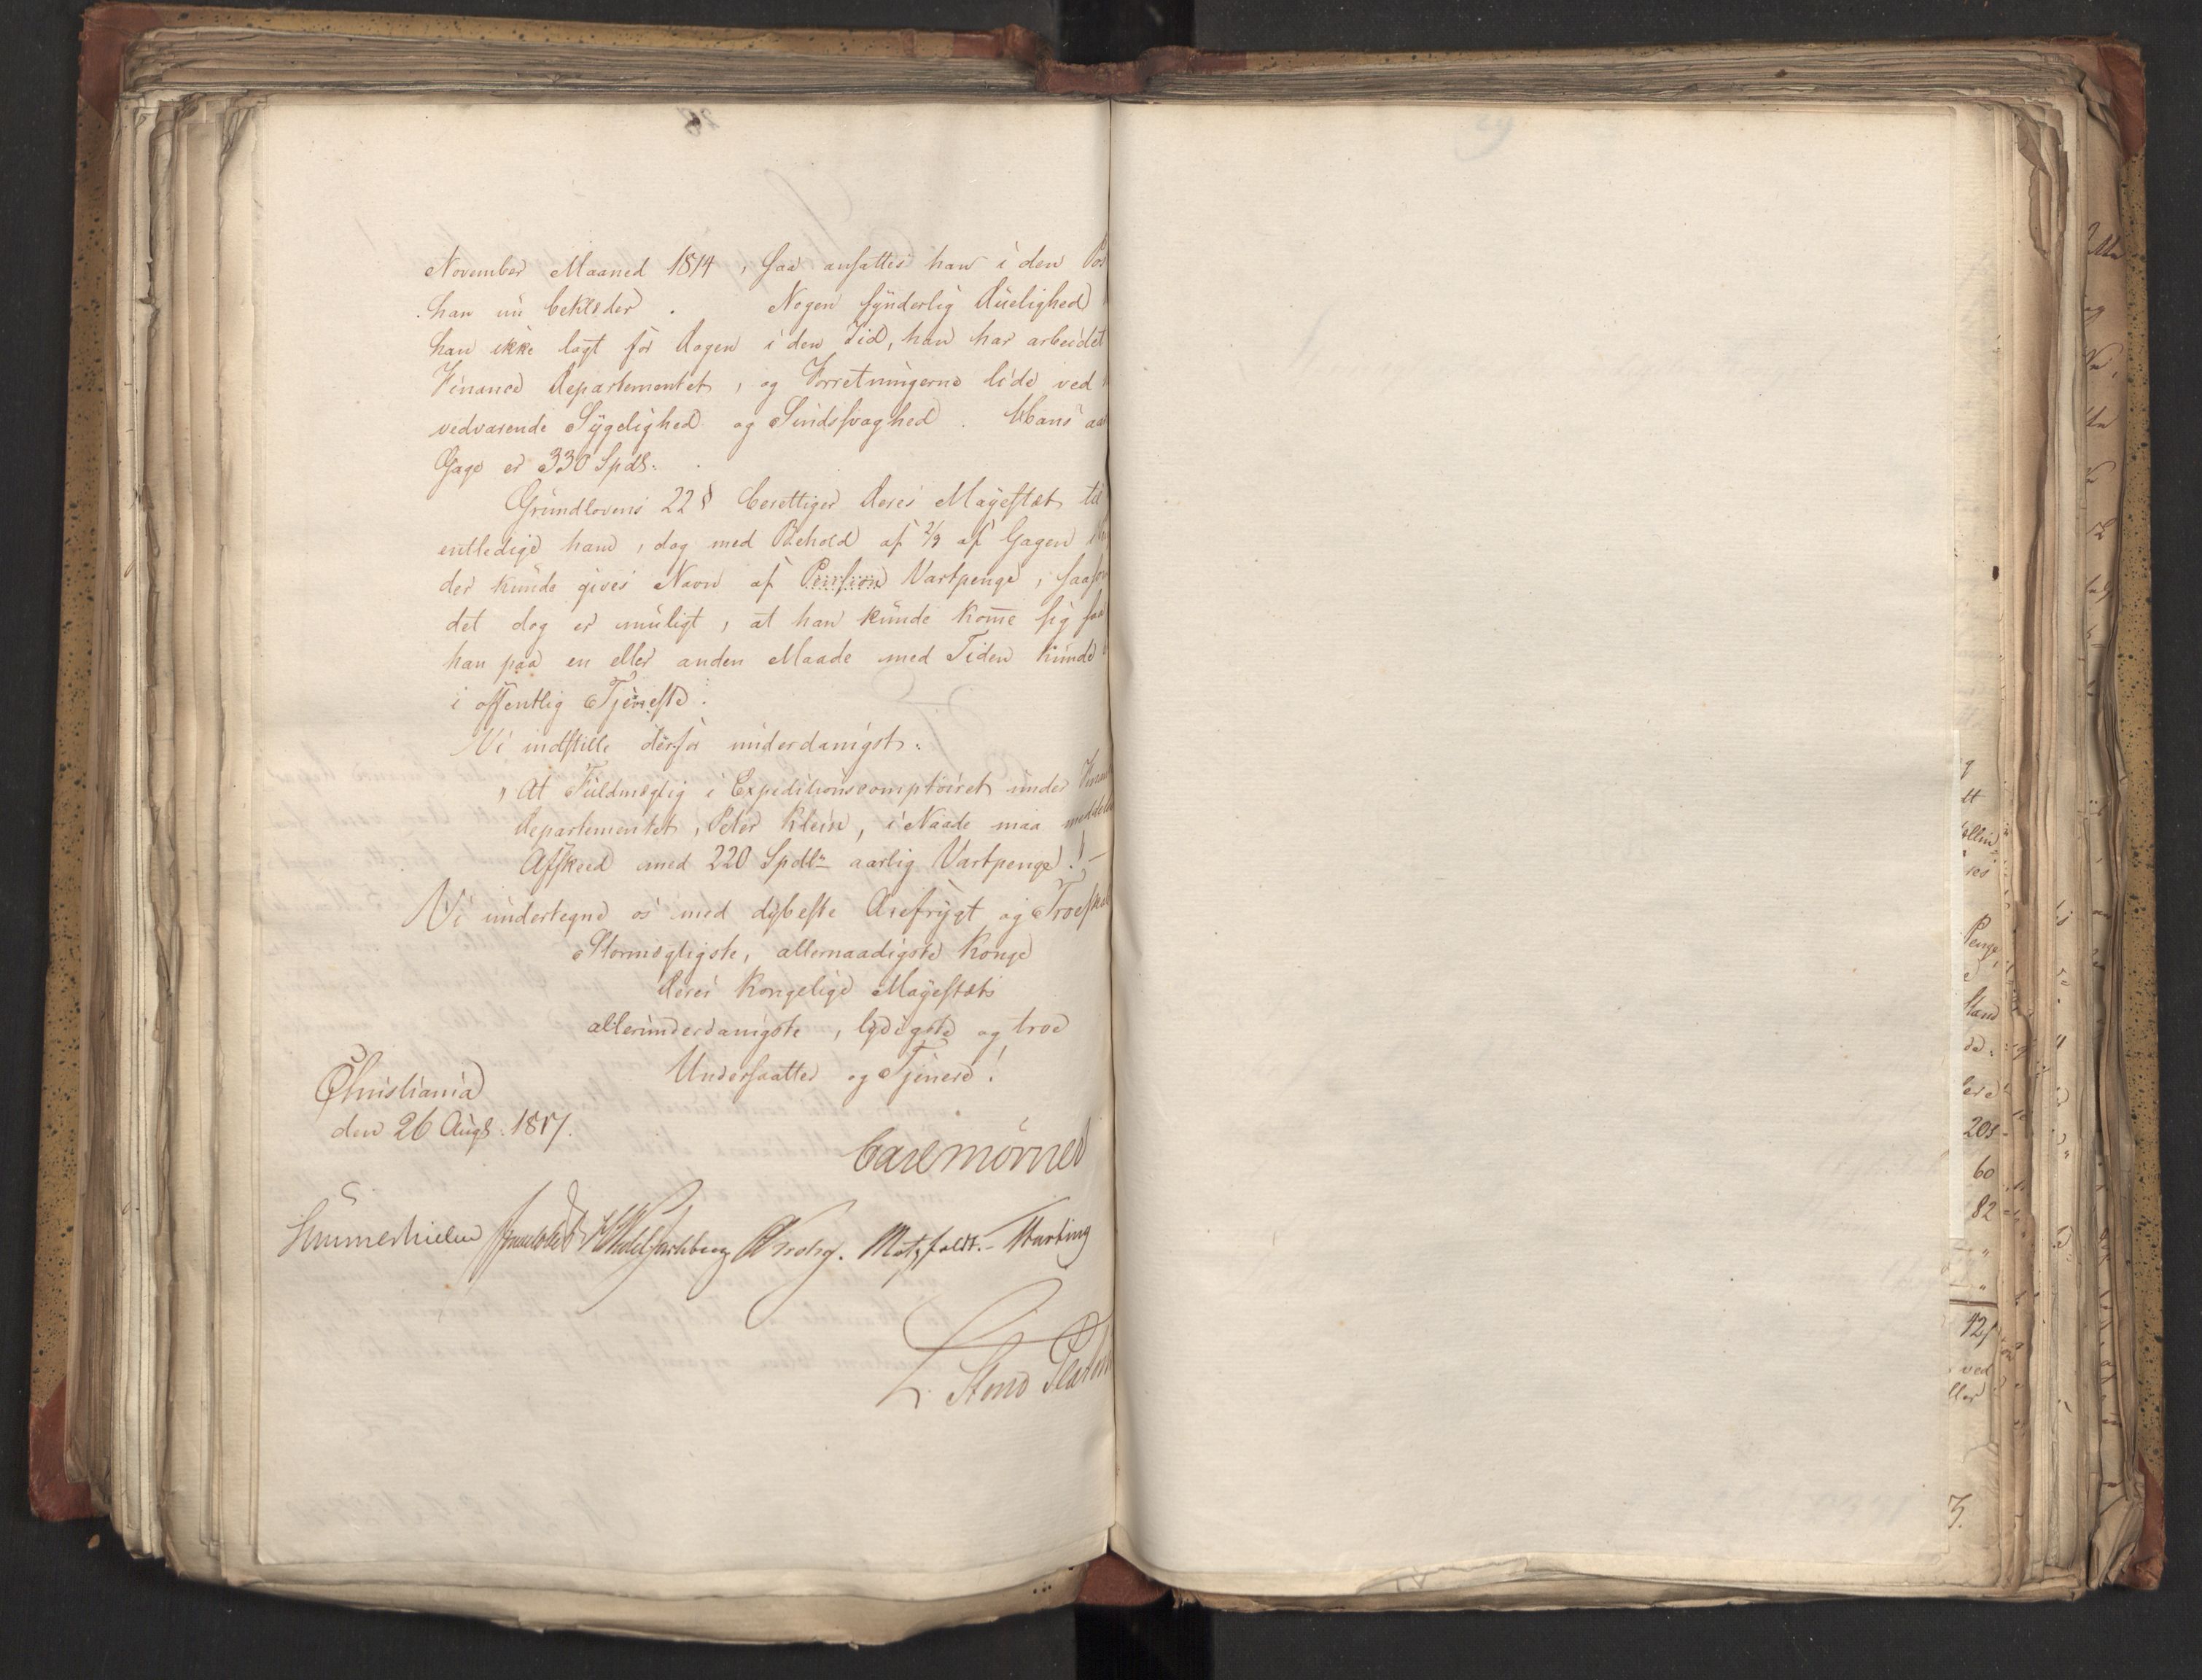 November Maaned 1814, saa ansattes han i den Pos
han nu beklæder. Nogen synderlig Duelighed
han ikke lagt for Dagen i den Tid, han har arbeidet
Finance Departementet, og Forretningerne lide ved
vedvarende Sygelighed og Sindssvaghed. Hans aa
Gage er 330 Spdl:
Grundlovens 22 § berettiger Deres Majestæt til
entledige ham, dog med Behold af 2/3 af Gagen
der kunde gives Navn af Pension Vartpenge, saaso
det dog er muligt, at han kunde kom̅e sig saa
han paa en eller anden Maade med Tiden kunde
i offentlig Tjeneste.
Vi indstille derfor underdanigst:
„At Fuldmægtig i Expeditionscomptoiret under Finan
Departementet, Peter Klein, i Naade maa meddel
Afskeed med 220 Spdlr aarlig Vartpenge! —
Vi undertegne os med dybeste Ærefrygt og Troeska
Stormægtigste, allernaadigste Konge
Deres Kongelige Majestæts
allerunderdanigste, lydigste og troe
Undersaatter og Tjenere!
Christiania
den 26 Augs. 1817.
Carl Mörner
Hummerhielm Sommerfeldt Wedel Jarlsberg Krohg. Motzfeldt. Harting